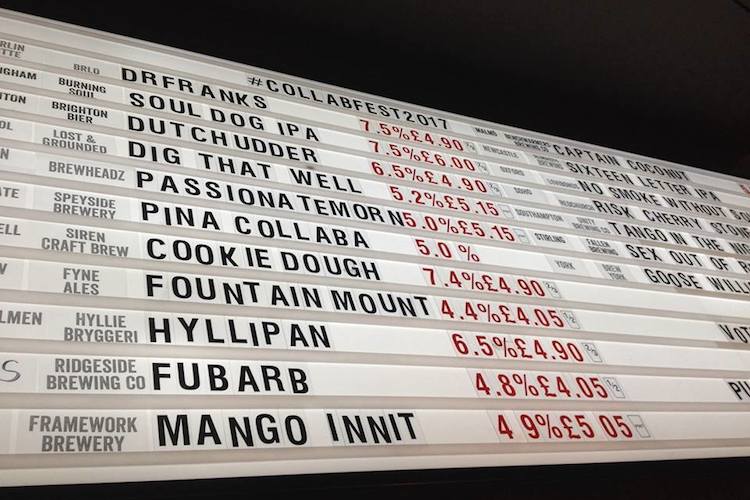 #COLLABFEST2017
RLIN TTE BRLO DRFRANKS 7.5%£4.90 MALMO BENCHWARMERS BREWING CO CAPTAIN COCONUT
NGHAM BURNING SOUL SOUL DOG IPA 7.5%£6.00 NEWCASTLE SIXTEEN LETTER IPA
TON BRIGHTON BIER DUTCHUDDER 6.5%£4.90 OXFORD NO SMOKE WITHOUT
OL LOST & GROUNDED DIG THAT WELL 5.2%£5.15 SOHO RISK CHERRY STON
N BREWHEADZ PASSIONATEMORN 5.0%£5.15 SOUTHAMPTON UNITY BREWING CO TANGO IN THE N
ATE SPEYSIDE BREWERY PINA COLLABA 5.0% STIRLING FALLEN BREWING SEX OUT OF
ELL SIREN CRAFT BREW COOKIE DOUGH 7.4%£4.90 1/2 YORK BREW YORK GOOSE WILL
W FYNE ALES FOUNTAIN MOUNT 4.4%£4.05 1/2
LMEN HYLLIE BRYGGERI HYLLIPAN 6.5%£4.90 2/3 VOT
S RIDGESIDE BREWING CO FUBARB 4.8%£4.05 1/2
FRAMEWORK BREWERY MANGO INNIT 4 9%£5 05